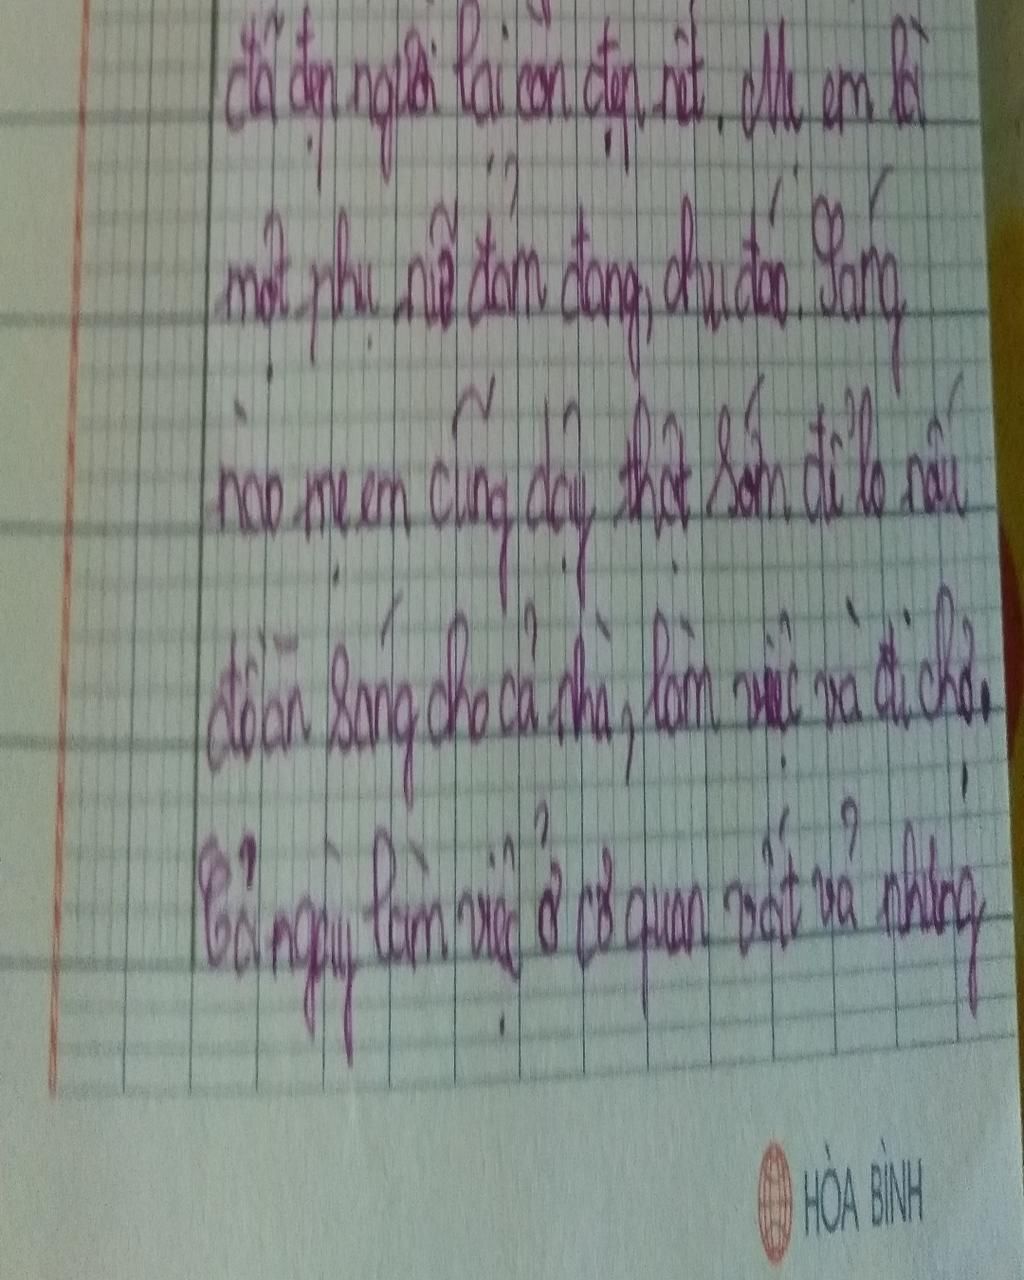 đã đẹp người lại còn đẹp nết. Mẹ em là
một phụ nữ đảm đang, chu đáo. Sáng
nào mẹ em cũng dậy thật sớm để lo nấu
đồ ăn sáng cho cả nhà, làm việc và đi chợ.
Cả ngày làm việc ở cơ quan vất vả nhưng
HÒA BÌNH